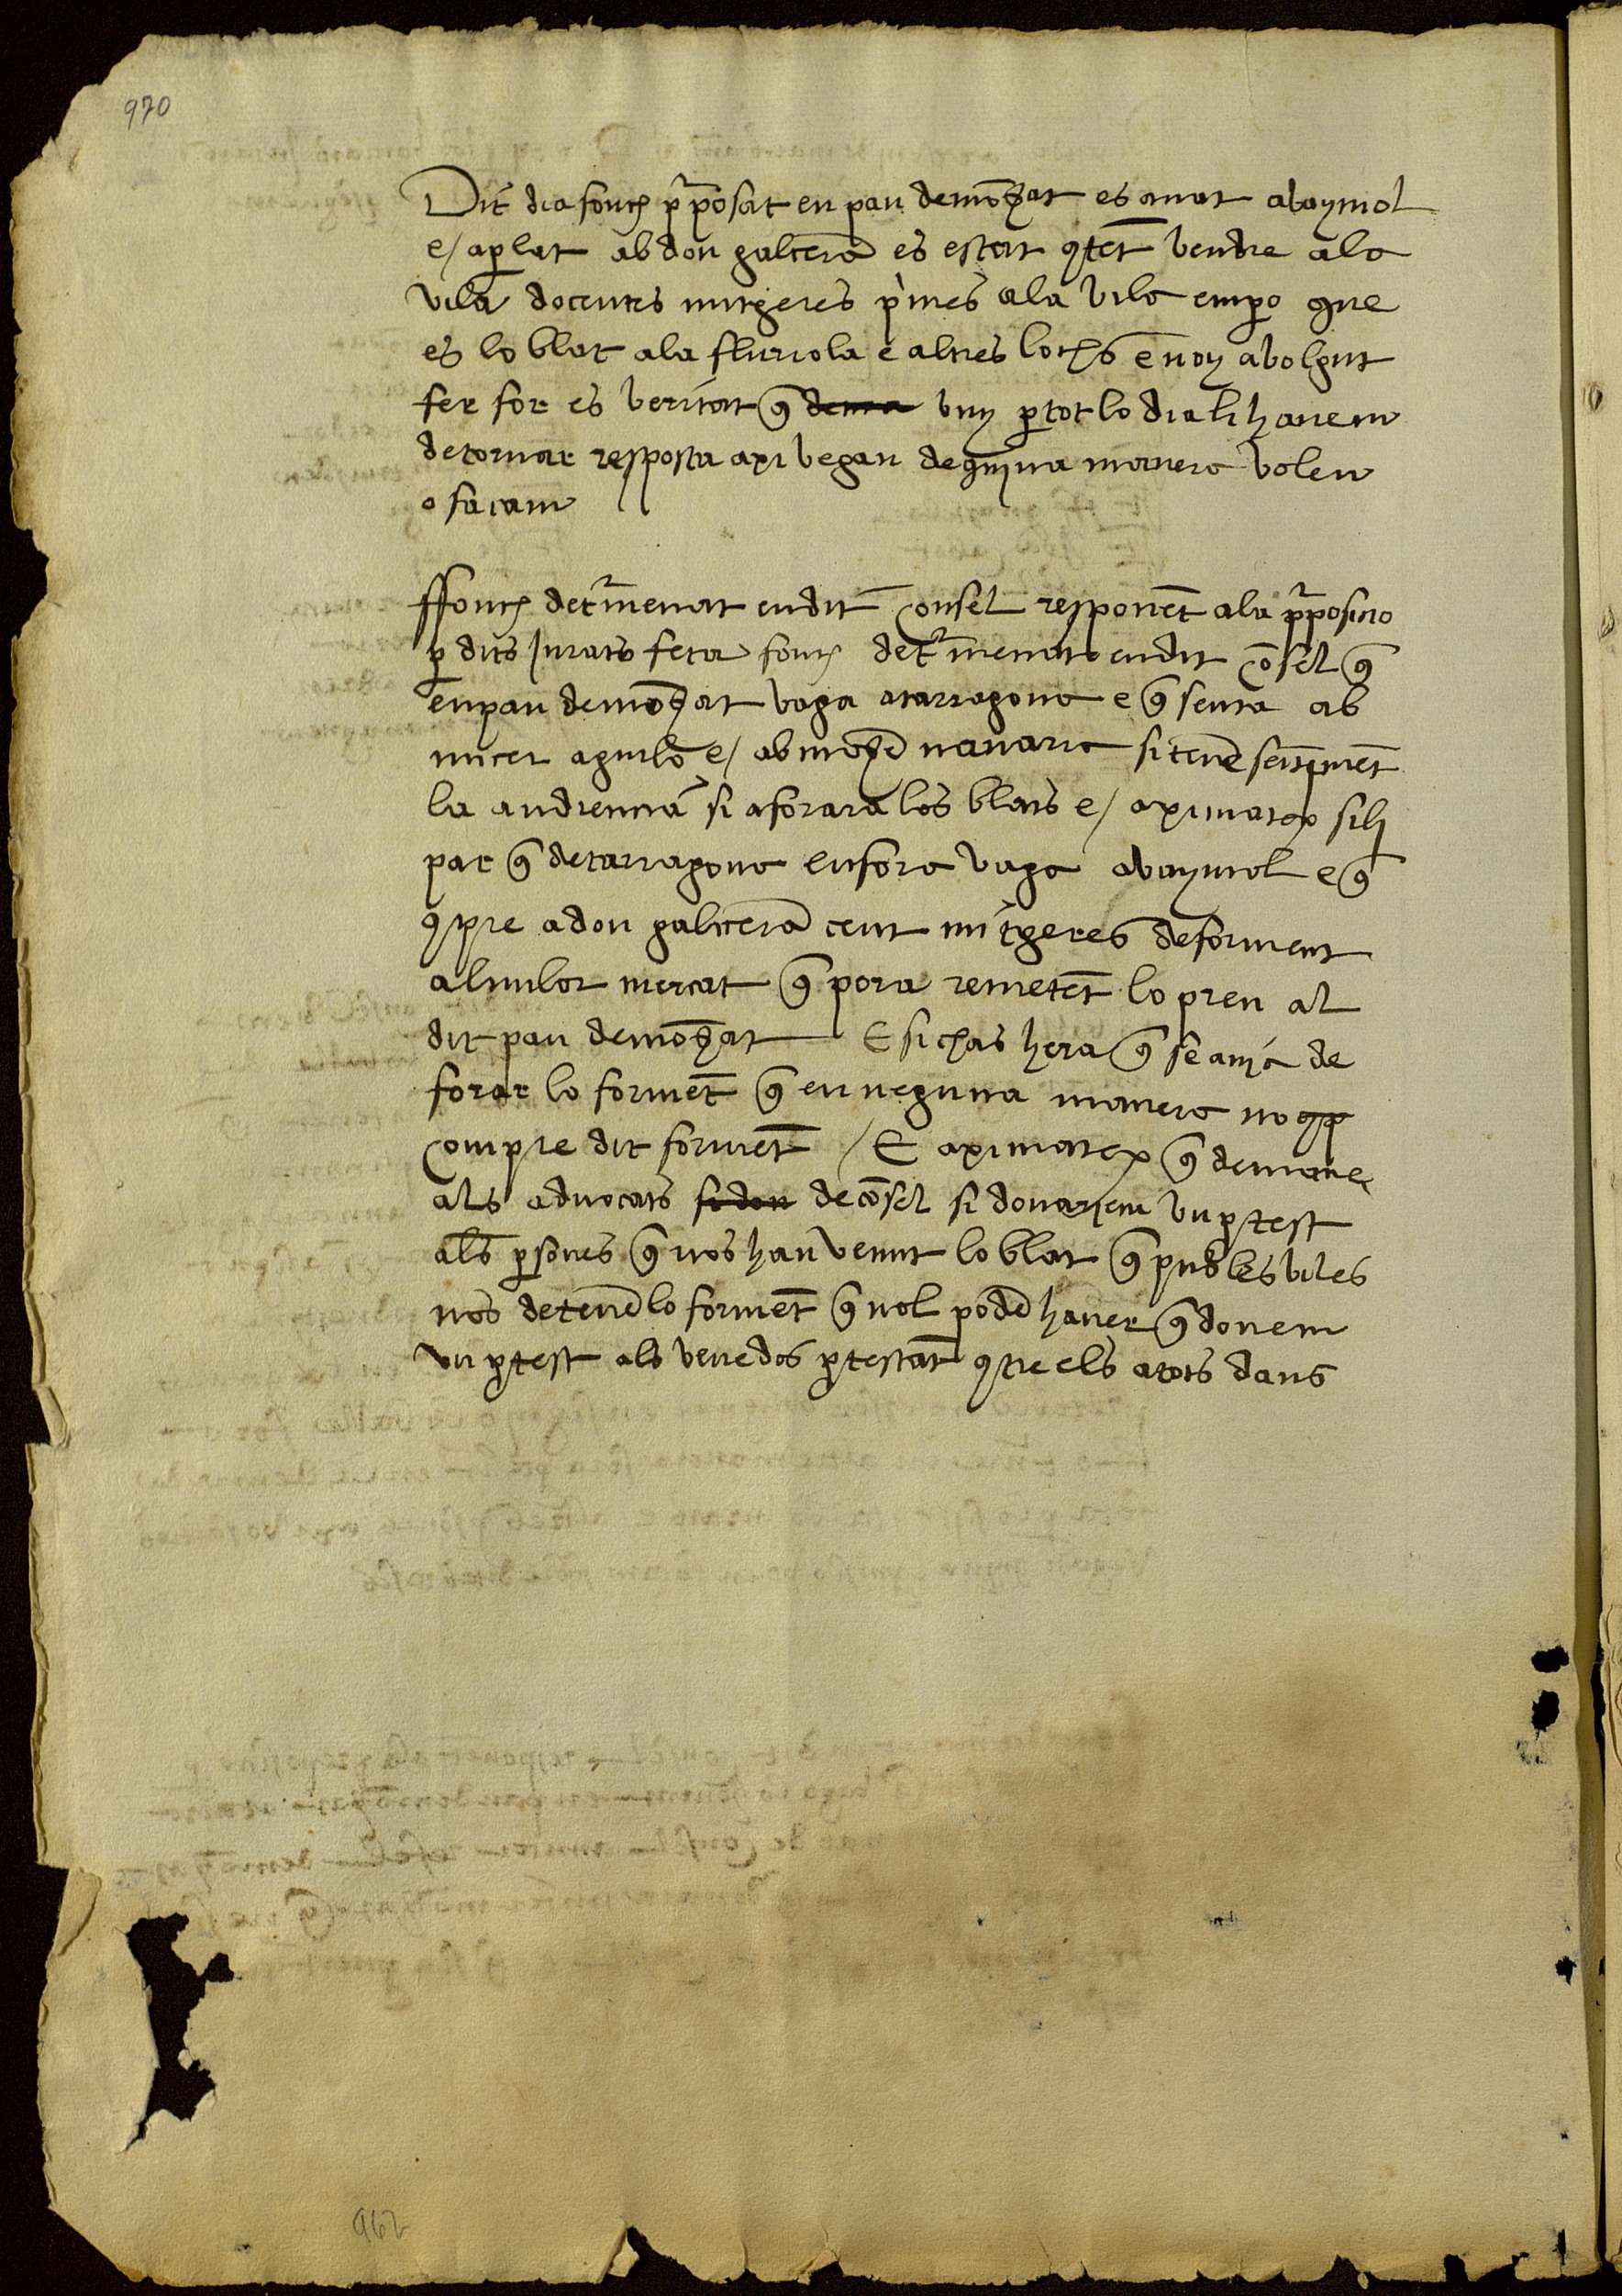 970
Dit dia fonch p̱posat en pau demōẖat es anat abaymol
e/ aꝑlat ab don galcerā es estat ꝯtēt vendre ala
vila docentes mitgeres p̱mes ala vila emꝑo que
es lo blat ala fluriola e altres lochs e noy a volgut
fer for es veritat q̄ dema vuy ꝑ tot lo dia li hauem
de tornar resposta axi vegan de quina manera volen
o façam
ffonch det̄menat en dit Consel responēt ala p̱posicio
ꝑ dits Jurats feta fonch det̄menat en dit cōsel q̄
en pau demōẖat vaga a tarragona e q̄ senta ab
micer agulo e/ ab mo navarro si tenē sentimēt
la audiencia si aforara los blats e/ aximatex sili
par q̄ de tarragona enfora vaga abaymol e q̄
ꝯpre a don galcerā cent mitgeres de forment
al millor mercat q̄ pora remetēt lo preu al
dit pau demōẖat E si chas hera q̄ se agǵ de
forar lo formēt q̄ en neguna manera no ꝯp
compre dit formēt / E aximatex q̄ demane
als aduocats si don de cōsel si donariem vn ꝓtest
als ꝑsones q̄ nos han venut lo blat q̄ pus les viles
nos detenē lo formēt q̄ nol podē hauer q̄ donem
vn ꝓtest als venedos ꝓtestāt ꝯtre els a tots dans
962